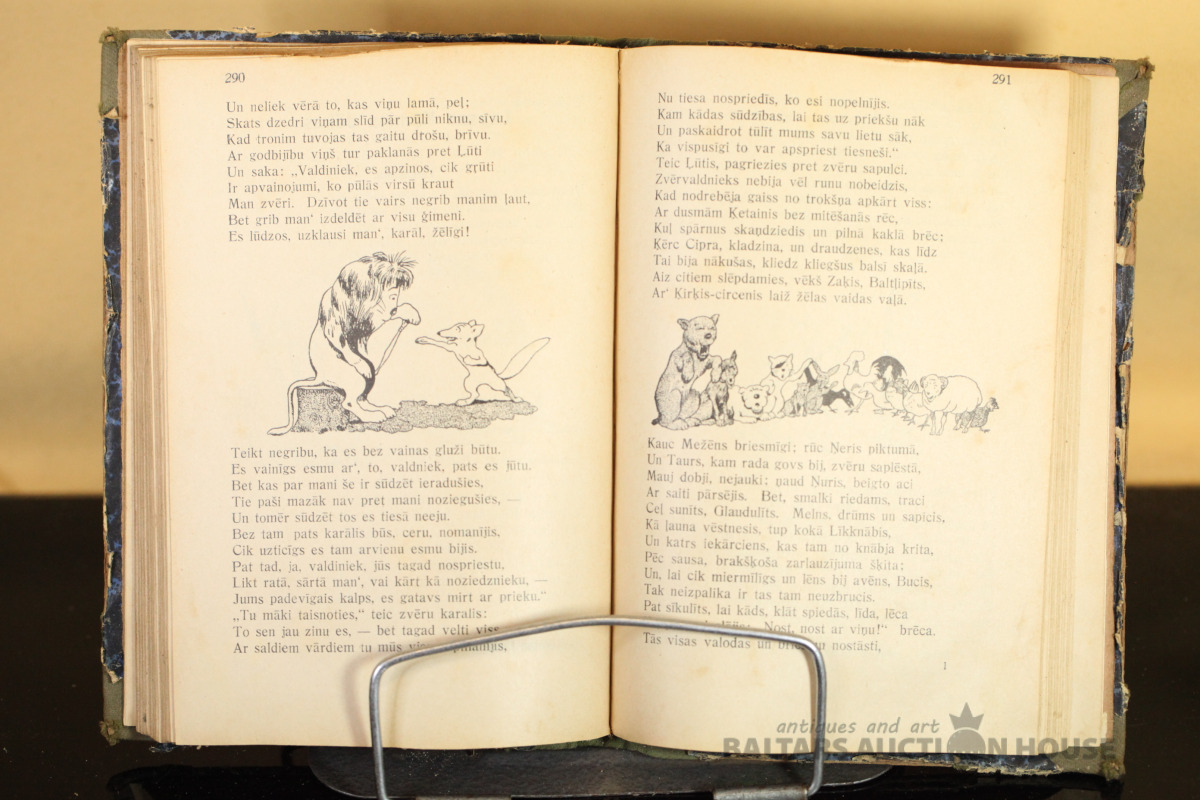 290
Un neliek vērā to, kas viņu lamā, peļ;
Skats dzedri viņam slīd pār pūli niknu, sīvu,
Kad tronim tuvojas tas gaitu drošu, brīvu.
Ar godbijību viņš tur paklanās pret Ļūti
Un saka: „Valdiniek, es apzinos, cik grūti
Ir apvainojumi, ko pūlās virsū kraut
Man zvēri. Dzīvot tie vairs negrib manim ļaut,
Bet grib man' izdeldēt ar visu ģimeni.
Es lūdzos, uzklausi man', karāl, žēlīgi!
Teikt negribu, ka es bez vainas gluži būtu.
Es vainīgs esmu ar', to, valdniek, pats es jūtu.
Bet kas par mani še ir sūdzēt ieradušies,
Tie paši mazāk nav pret mani noziegušies, —
Un tomēr sūdzēt tos es tiesā neeju.
Bez tam pats karālis būs, ceru, nomanījis,
Cik uzticīgs es tam arvienu esmu bijis.
Pat tad, ja, valdiniek, jūs tagad nospriestu,
Likt ratā, sārtā man', vai kārt kā noziedznieku, —
Jums padevīgais kalps, es gatavs mirt ar prieku.“
„Tu māki taisnoties,“ teic zvēru karalis:
To sen jau zinu es, — bet tagad velti viss
Ar saldiem vārdiem tu mūs
291
Nu tiesa nospriedīs, ko esi nopelnījis.
Kam kādas sūdzības, lai tas uz priekšu nāk
Un paskaidrot tūlīt mums savu lietu sāk,
Ka vispusīgi to var apspriest tiesneši.“
Teic Ļūtis, pagriezies pret zvēru sapulci.
Zvērvaldnieks nebija vēl runu nobeidzis,
Kad nodrebēja gaiss no trokšņa apkārt viss:
Ar dusmām Ķetainis bez mitēšanās rēc,
Kuļ spārnus skaņdziedis un pilnā kaklā brēc;
Ķērc Cipra, kladzina, un draudzenes, kas līdz
Tai bija nākušas, kliedz kliegšus balsi skaļā.
Aiz citiem slēpdamies, vēkš Zaķis, Baltļipīts,
Ar' Ķirķis-circenis laiž žēlas vaidas vaļā.
Kauc Mežēns briesmīgi; rūc Ņeris piktumā,
Un Taurs, kam rada govs bij, zvēru saplēstā,
Mauj dobji, nejauki; ņaud Nuris, beigto aci
Ar saiti pārsējis. Bet, smalki riedams, traci
Ceļ sunīts, Glaudulīts. Melns, drūms un sapīcis,
Kā ļauna vēstnesis, tup kokā Līkknābis,
Un katrs iekārciens, kas tam no knābja krita,
Pēc sausa, brakšķoša zarlauzijuma šķita;
Un, lai cik miermīlīgs un lēns bij avēns, Bucis,
Tak neizpalika ir tas tam neuzbrucis.
Pat sīkulīts, lai kāds, klāt spiedās, līda, lēca
Nost, nost ar viņu!“ brēca.
Tās visas valodas un nostāsti,
1
antiques and art
BALTARS AUCTION HOUSE